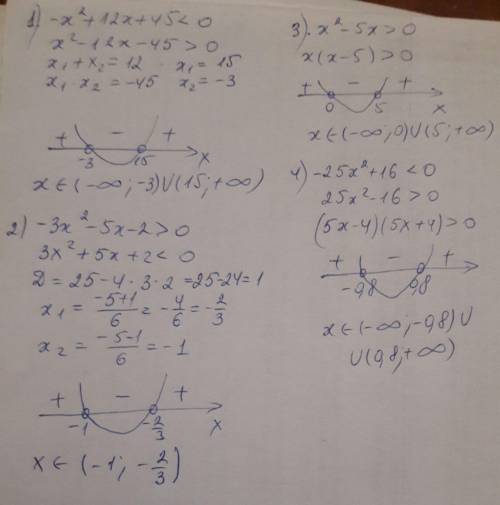 1) -x²+12x+45<0
x²-12x-45>0
x₁+x₂=12 x₁=15
x₁·x₂=-45 x₂=-3
+ - +
-3 15 x
x∈(-∞;-3)∪(15;+∞)
2) -3x²-5x-2>0
3x²+5x+2<0
D=25-4·3·2=25-24=1
x₁=(-5+1)/6=-4/6=-2/3
x₂=(-5-1)/6=-1
+ - +
-1 -2/3 x
x∈(-1;-2/3)
3). x²-5x>0
x(x-5)>0
+ - +
0 5 x
x∈(-∞;0)∪(5;+∞)
4) -25x²+16<0
25x²-16>0
(5x-4)(5x+4)>0
+ - +
-0,8 0,8 x
x∈(-∞;-0,8)∪
∪(0,8;+∞)